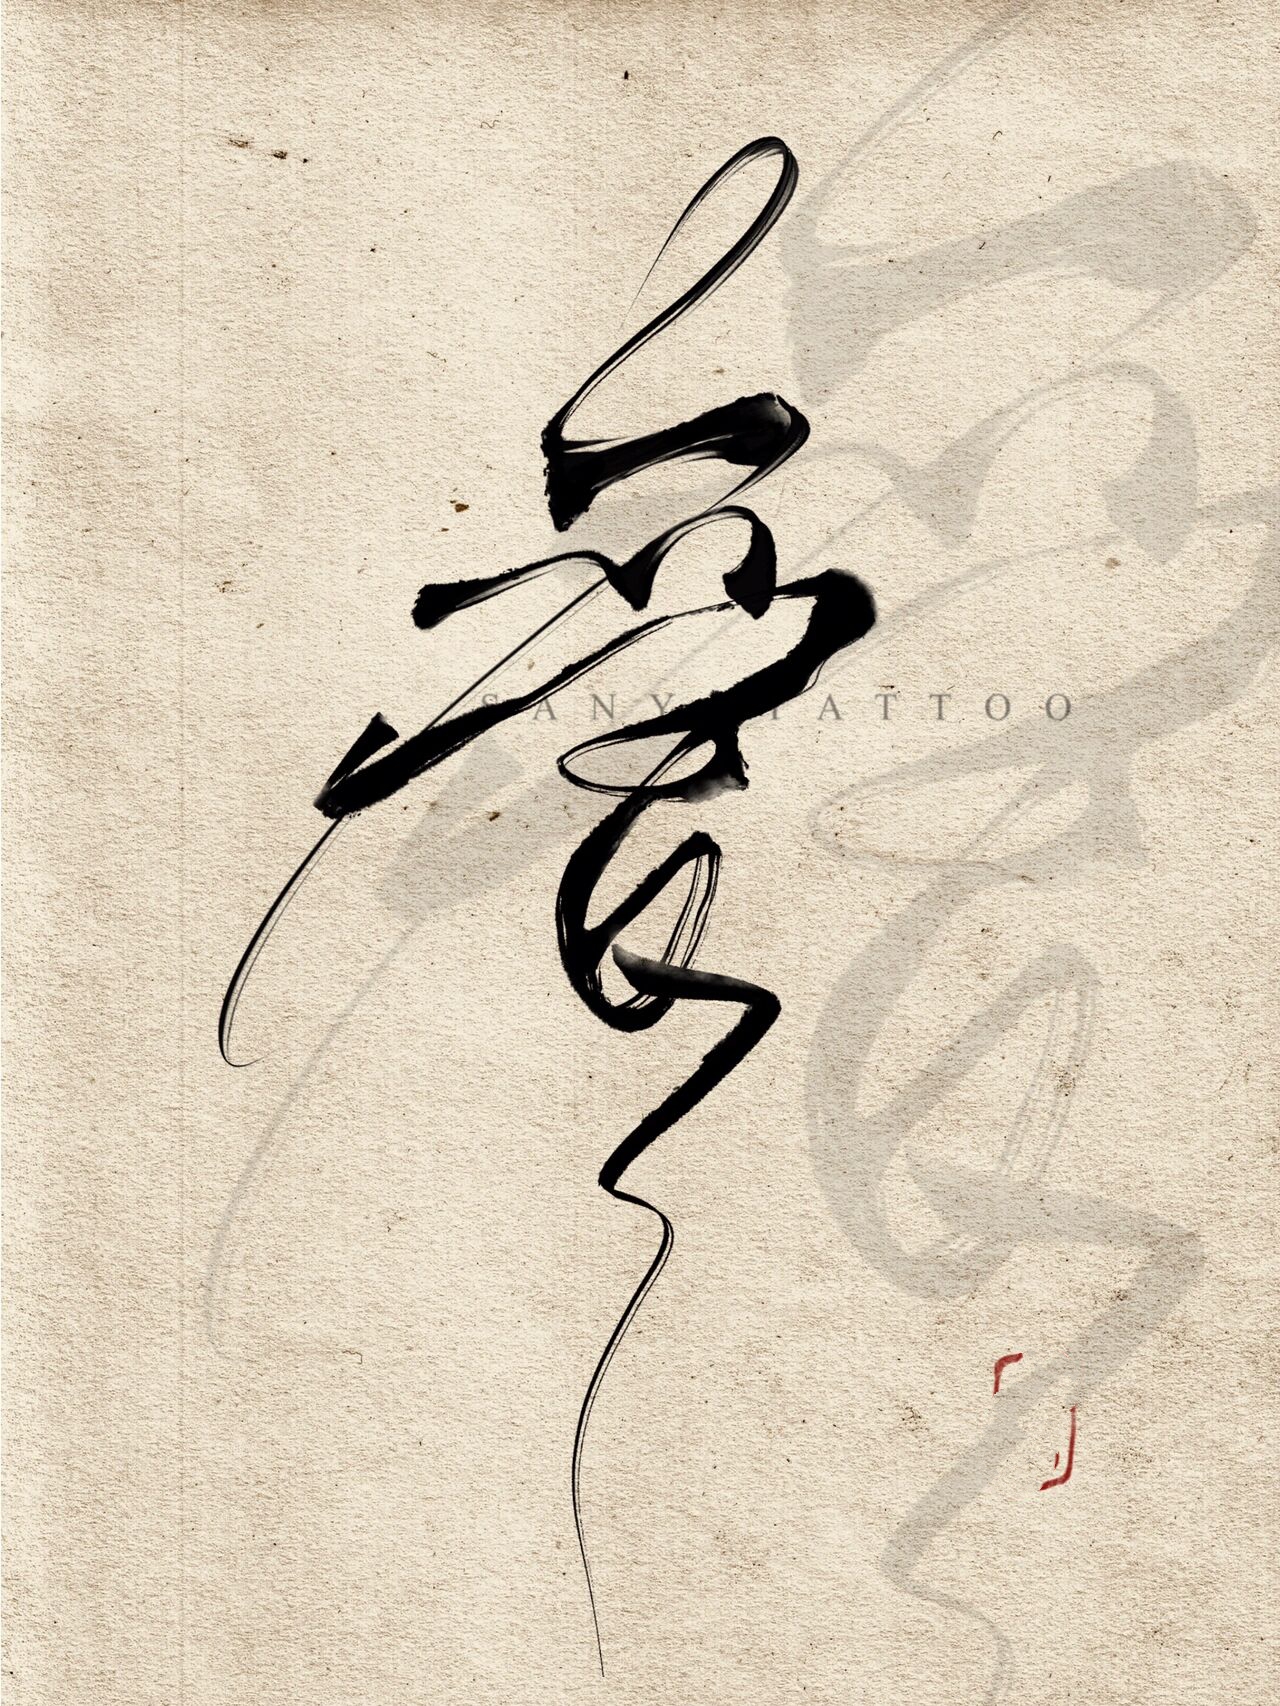 愛
SANY TATTOO